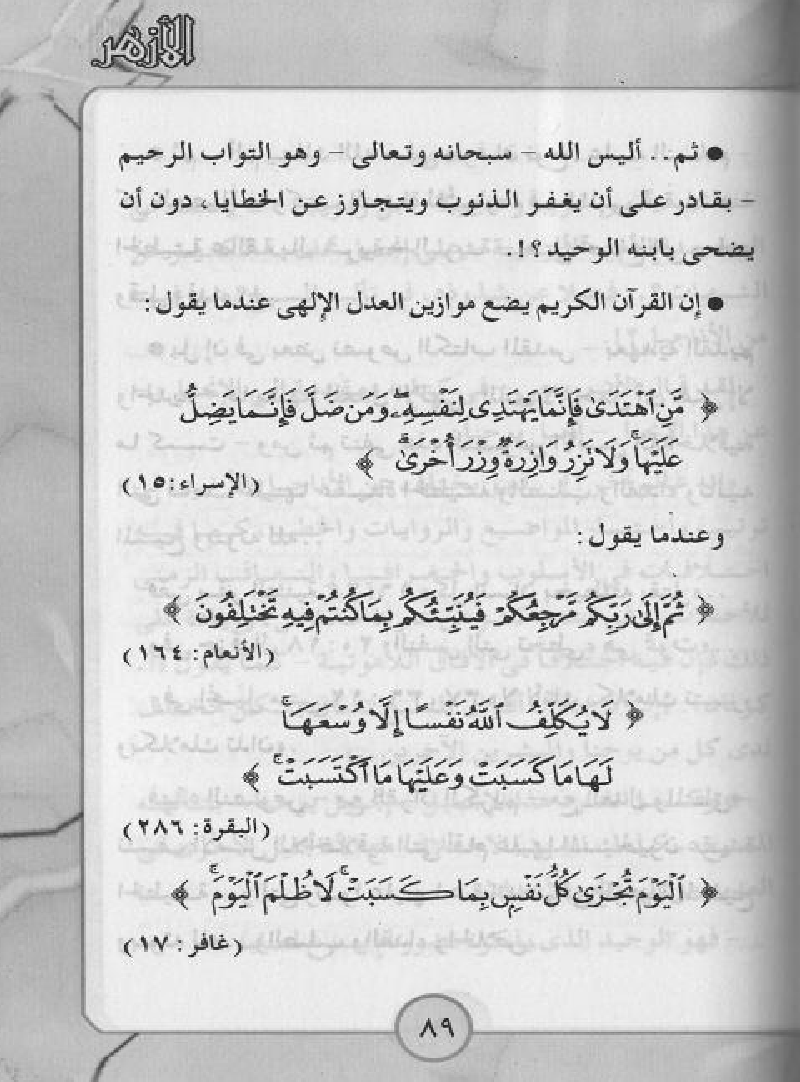 الأزهر
● ثم.. أليس الله - سبحانه وتعالى - وهو التواب الرحيم
- بقادر على أن يغفر الذنوب ويتجاوز عن الخطايا، دون أن
يضحى بابنه الوحيد؟!.
● إن القرآن الكريم يضع موازين العدل الإلهى عندما يقول:
﴿ مَّنِ اهْتَدَىٰ فَإِنَّمَا يَهْتَدِي لِنَفْسِهِ ۖ وَمَن ضَلَّ فَإِنَّمَا يَضِلُّ
عَلَيْهَا ۚ وَلَا تَزِرُ وَازِرَةٌ وِزْرَ أُخْرَىٰ ۗ ﴾
(الإسراء: ١٥)
وعندما يقول:
﴿ ثُمَّ إِلَىٰ رَبِّكُم مَّرْجِعُكُمْ فَيُنَبِّئُكُم بِمَا كُنتُمْ فِيهِ تَخْتَلِفُونَ ﴾
(الأنعام: ١٦٤)
﴿ لَا يُكَلِّفُ اللَّهُ نَفْسًا إِلَّا وُسْعَهَا ۚ
لَهَا مَا كَسَبَتْ وَعَلَيْهَا مَا اكْتَسَبَتْ ۗ ﴾
(البقرة: ٢٨٦)
﴿ الْيَوْمَ تُجْزَىٰ كُلُّ نَفْسٍ بِمَا كَسَبَتْ ۚ لَا ظُلْمَ الْيَوْمَ ۚ ﴾
(غافر: ١٧)
٨٩